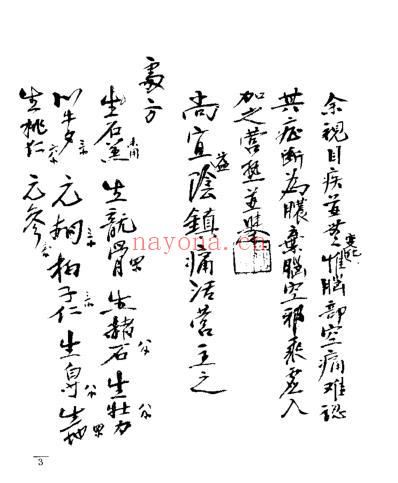 余視目疾並無變化惟腦部空痛难認
其症断為腦空邪乘虚入
加之营熱並
尚宜益陰鎮痛活营主之
處方
生石羔 生龍骨 生赭石 生牡力
川牛夕 元胡 柏子仁 生白芍 生地
生桃仁 元參
nayona.cn
3